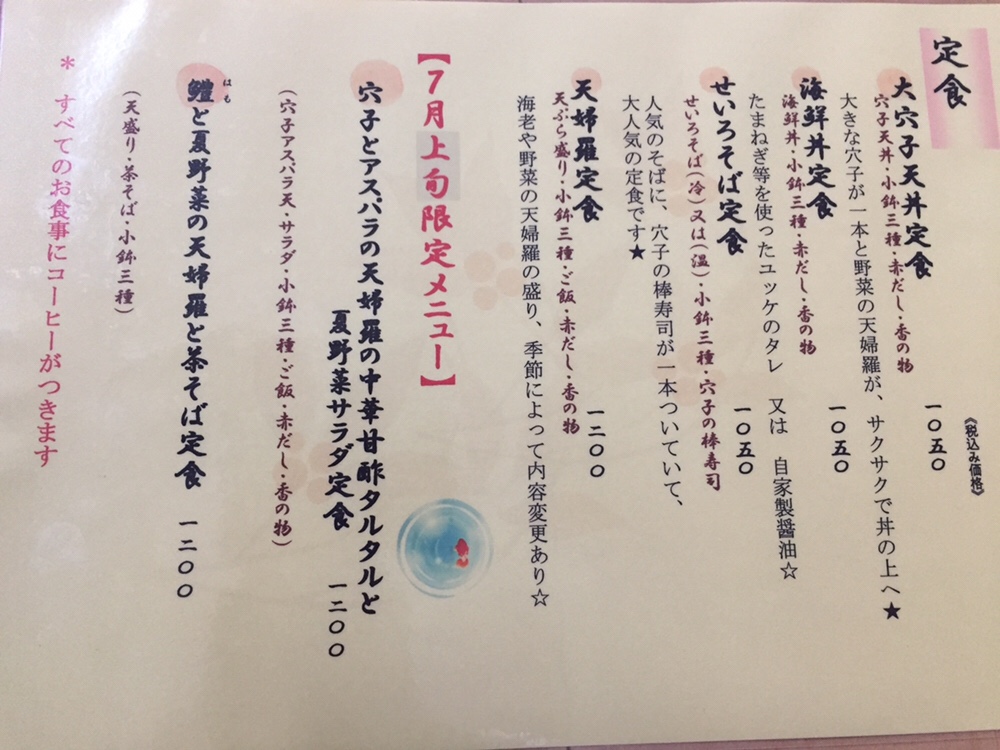 定食
《税込み価格》
大穴子天丼定食 一〇五〇
穴子天丼・小鉢三種・赤だし・香の物
大きな穴子が一本と野菜の天婦羅が、サクサクで丼の上へ★
海鮮丼定食 一〇五〇
海鮮丼・小鉢三種・赤だし・香の物
たまねぎ等を使ったユッケのタレ 又は 自家製醤油☆
せいろそば定食 一〇五〇
せいろそば(冷)又は(温)・小鉢三種・穴子の棒寿司
人気のそばに、穴子の棒寿司が一本ついていて、
大人気の定食です★
天婦羅定食 一二〇〇
天ぷら盛り・小鉢三種・ご飯・赤だし・香の物
海老や野菜の天婦羅の盛り、季節によって内容変更あり☆
【7月上旬限定メニュー】
穴子とアスパラの天婦羅の中華甘酢タルタルと
夏野菜サラダ定食 一二〇〇
(穴子アスパラ天・サラダ・小鉢三種・ご飯・赤だし・香の物)
はも
鱧と夏野菜の天婦羅と茶そば定食 一二〇〇
(天盛り・茶そば・小鉢三種)
* すべてのお食事にコーヒーがつきます